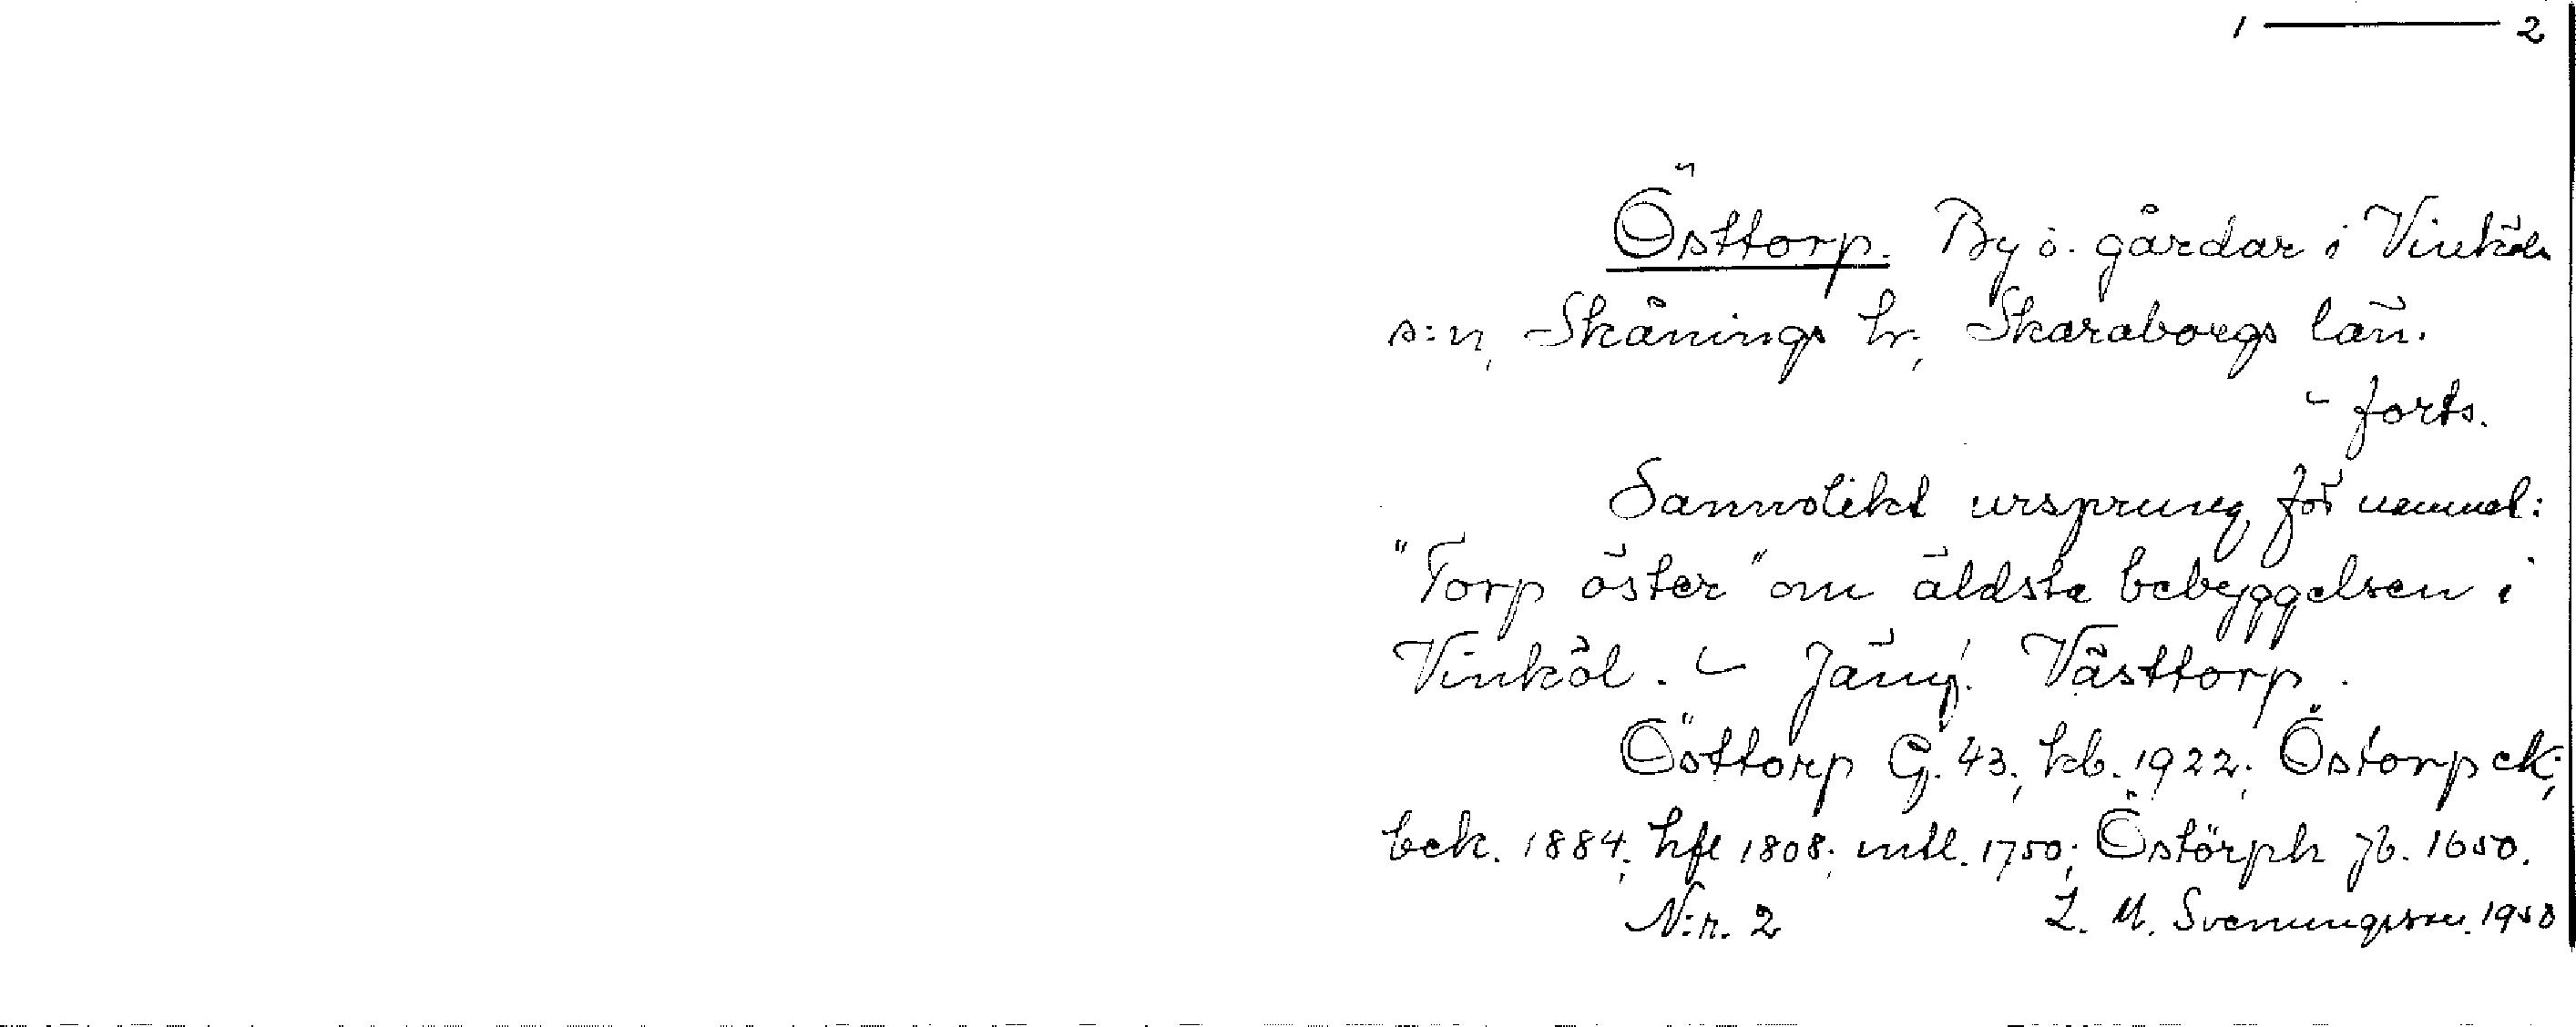 1 — 2
Östtorp. By o. gårdar i Vinköls
s:n, Skånings hr., Skaraborgs län.
– forts.
Sannolikt ursprung för namnet:
"Torp öster" om äldsta bebyggelsen i
Vinköl. – Jämf. Västtorp.
Östtorp G. 43, kb. 1922; Östorp ek;
bek. 1884; hfl 1808; mtl. 1750; Östörph jb. 1650.
N:r. 2 L. M. Svenungsson. 1950